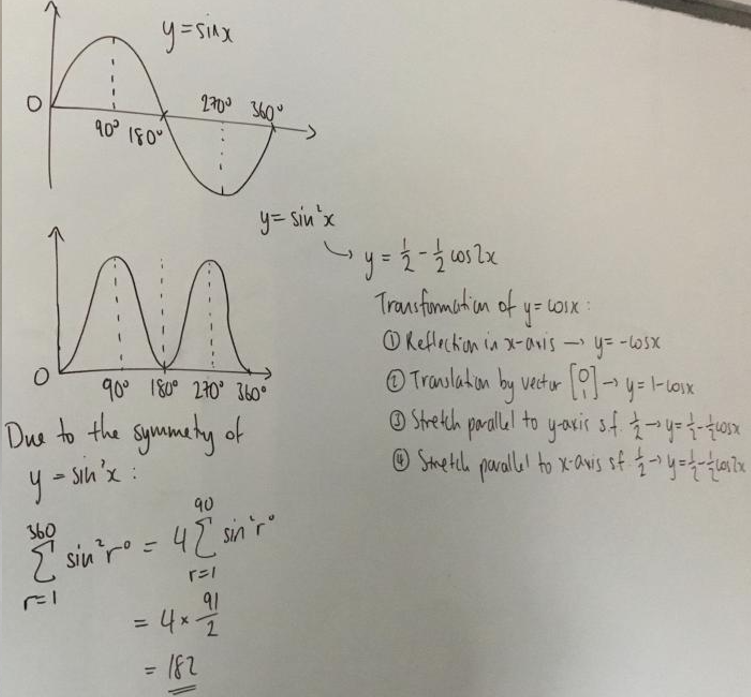 y=sinx
0
90° 180° 270° 360°
y=sin²x
0
90° 180° 270° 360°
→ y = 1/2 - 1/2 cos2x
Transformation of y=cosx:
① Reflection in x-axis → y=-cosx
② Translation by vector [0 1] → y=1-cosx
③ Stretch parallel to y-axis s.f. 1/2 → y=1/2-1/2cosx
④ Stretch parallel to x-axis sf. 1/2 → y=1/2-1/2cos2x
Due to the symmetry of
y=sin²x:
360 ∑ r=1 sin²r° = 4 90 ∑ r=1 sin²r°
= 4 × 91/2
= 182